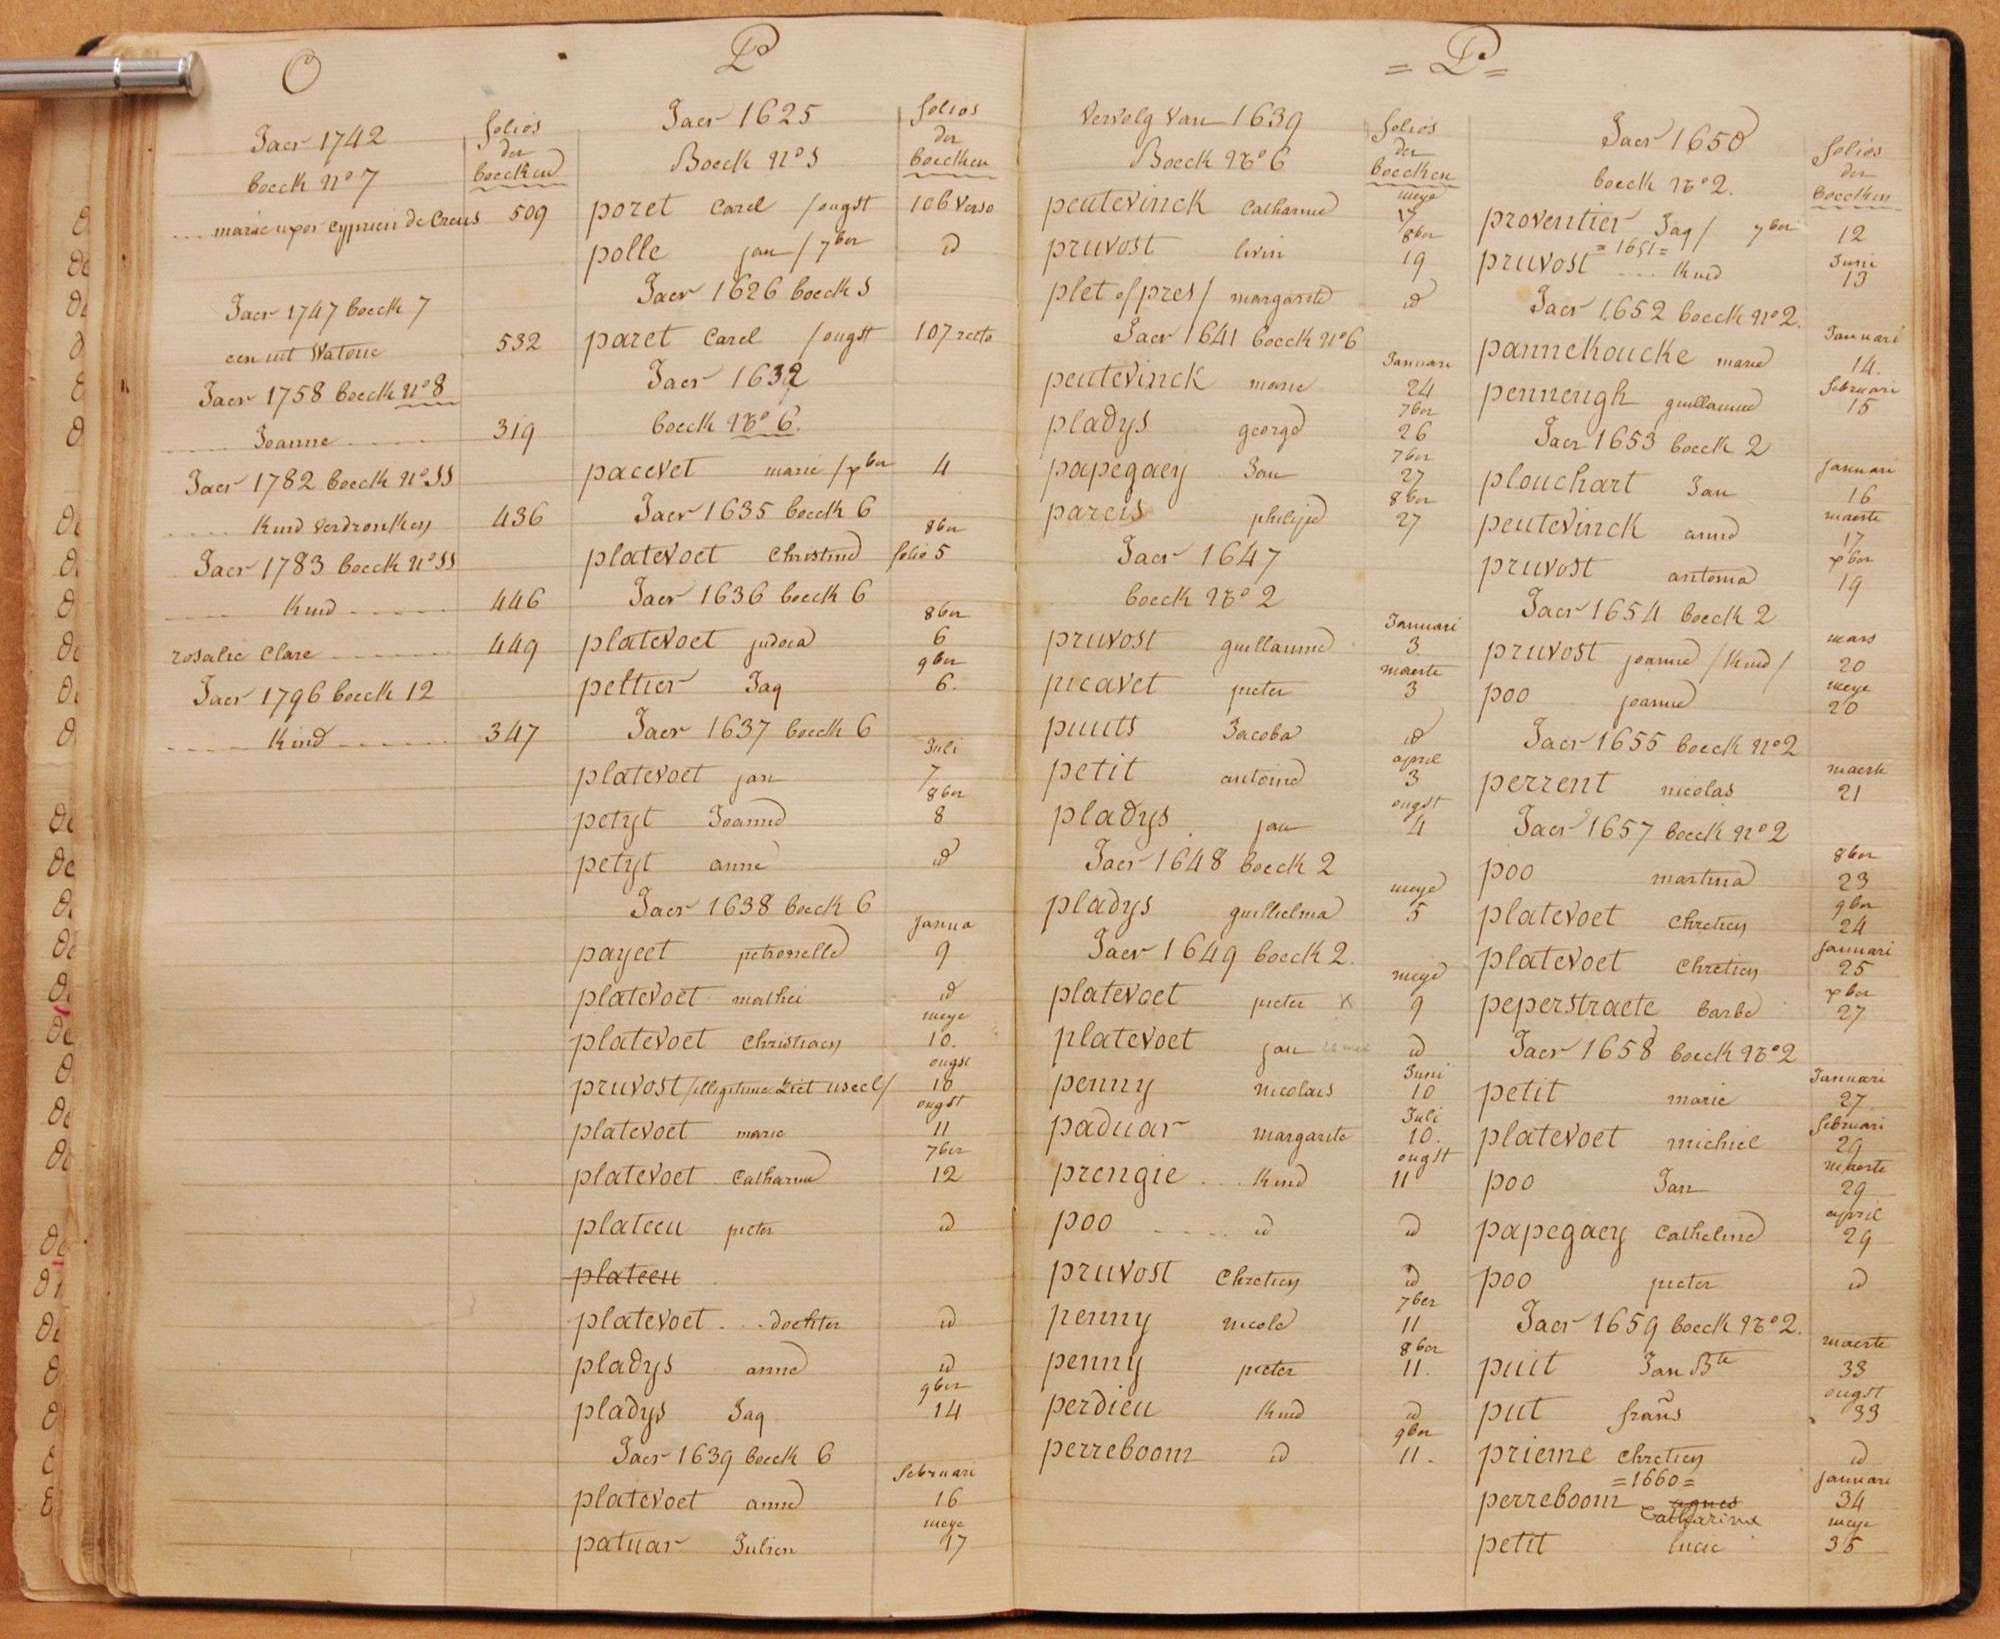 O
Jaer 1742
folios
der
boecken
boeck N° 7
.... marie uxor cyprien de Creus 509
Jaer 1747 boeck 7
een uit Watoue 532
Jaer 1758 boeck N° 8
.... Joanne .... 319
Jaer 1782 boeck N° 11
.... Kind verdronken 436
Jaer 1783 boeck N° 11
.... Kind .... 446
rosalie Clare .... 449
Jaer 1796 boeck 12
.... Kind .... 347
P
Jaer 1625
folios
der
boecken
Boeck N° 5
poret Carel / ougst 106 verso
polle jan / 7ber id
Jaer 1626 boeck 5
paret Carel / ougst 107 recto
Jaer 1632
boeck N° 6.
pacevet marie / xber 4
Jaer 1635 boeck 6
8ber
platevoet Christine folio 5
Jaer 1636 boeck 6
8ber
platevoet judoca 6
9ber
peltier Jaq 6.
Jaer 1637 boeck 6
Juli
platevoet jan 7
8ber
petyt Joanne 8
petyt anne id
Jaer 1638 boeck 6
janua
payeet petronelle 9
platevoet mathei id
meye
platevoet Christiaen 10.
ougst
pruvost / illegitime 10
ougst
platevoet marie 11
7ber
platevoet Catharine 12
plateeu pieter id
plateeu
platevoet .... dochter id
pladys anne id
9ber
pladys Jaq 14
Jaer 1639 boeck 6
februari
platevoet anne 16
meye
patuar Julien 17
= P =
Vervolg van 1639
folios
der
boecken
Boeck N° 6
meye
peutevinck Catharine 17
8ber
pruvost livin 19
plet of pres / margarite id
Jaer 1641 boeck N° 6
Januari
peutevinck marie 24
7ber
pladys george 26
7ber
papegaey Jan 27
8ber
pareis philippe 27
Jaer 1647
boeck N° 2
Januari
pruvost guillaume 3
maerte
picavet pieter 3
puuts Jacoba id
april
petit antoine 3
ougst
pladys jan 4
Jaer 1648 boeck 2
meye
pladys guilhelma 5
Jaer 1649 boeck 2.
meye
platevoet pieter x 9
platevoet jan id
Juni
penny nicolais 10
Juli
paduar margarite 10.
ougst
prengie .... Kind 11
poo .... id id
pruvost Chretien id
7ber
penny nicole 11
8ber
penny pieter 11.
perdieu Kind id
9ber
perreboom id 11.
Jaer 1650
folios
der
boecken
boeck N° 2.
proventier Jaq / 7ber 12
= 1651 =
Juni
pruvost .... Kind 13
Jaer 1652 boeck N° 2.
Januari
pannekoucke marie 14.
februari
penneugh guillaume 15
Jaer 1653 boeck 2
januari
plouchart Jan 16
maerte
peutevinck anne 17
xber
pruvost antonia 19
Jaer 1654 boeck 2
mars
pruvost joanne / Kind / 20
meye
poo joanne 20
Jaer 1655 boeck N° 2
maerte
perrent nicolas 21
Jaer 1657 boeck N° 2
8ber
poo martina 23
9ber
platevoet Chretien 24
januari
platevoet Chretien 25
xber
peperstraete barbe 27
Jaer 1658 boeck N° 2
Januari
petit marie 27
februari
platevoet michiel 29
maerte
poo Jan 29
april
papegaey Catheline 29
poo pieter id
Jaer 1659 boeck N° 2.
maerte
puit Jan Bte 33
ougst
put frans 33
prieme Chretien id
= 1660 =
januari
perreboom agnes 34
Catharina
meye
petit lucie 35